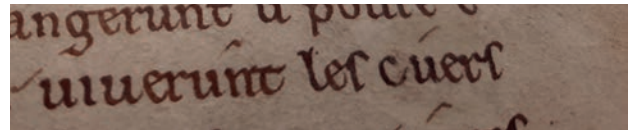 angerunt u poure e
uiuerunt les cuers